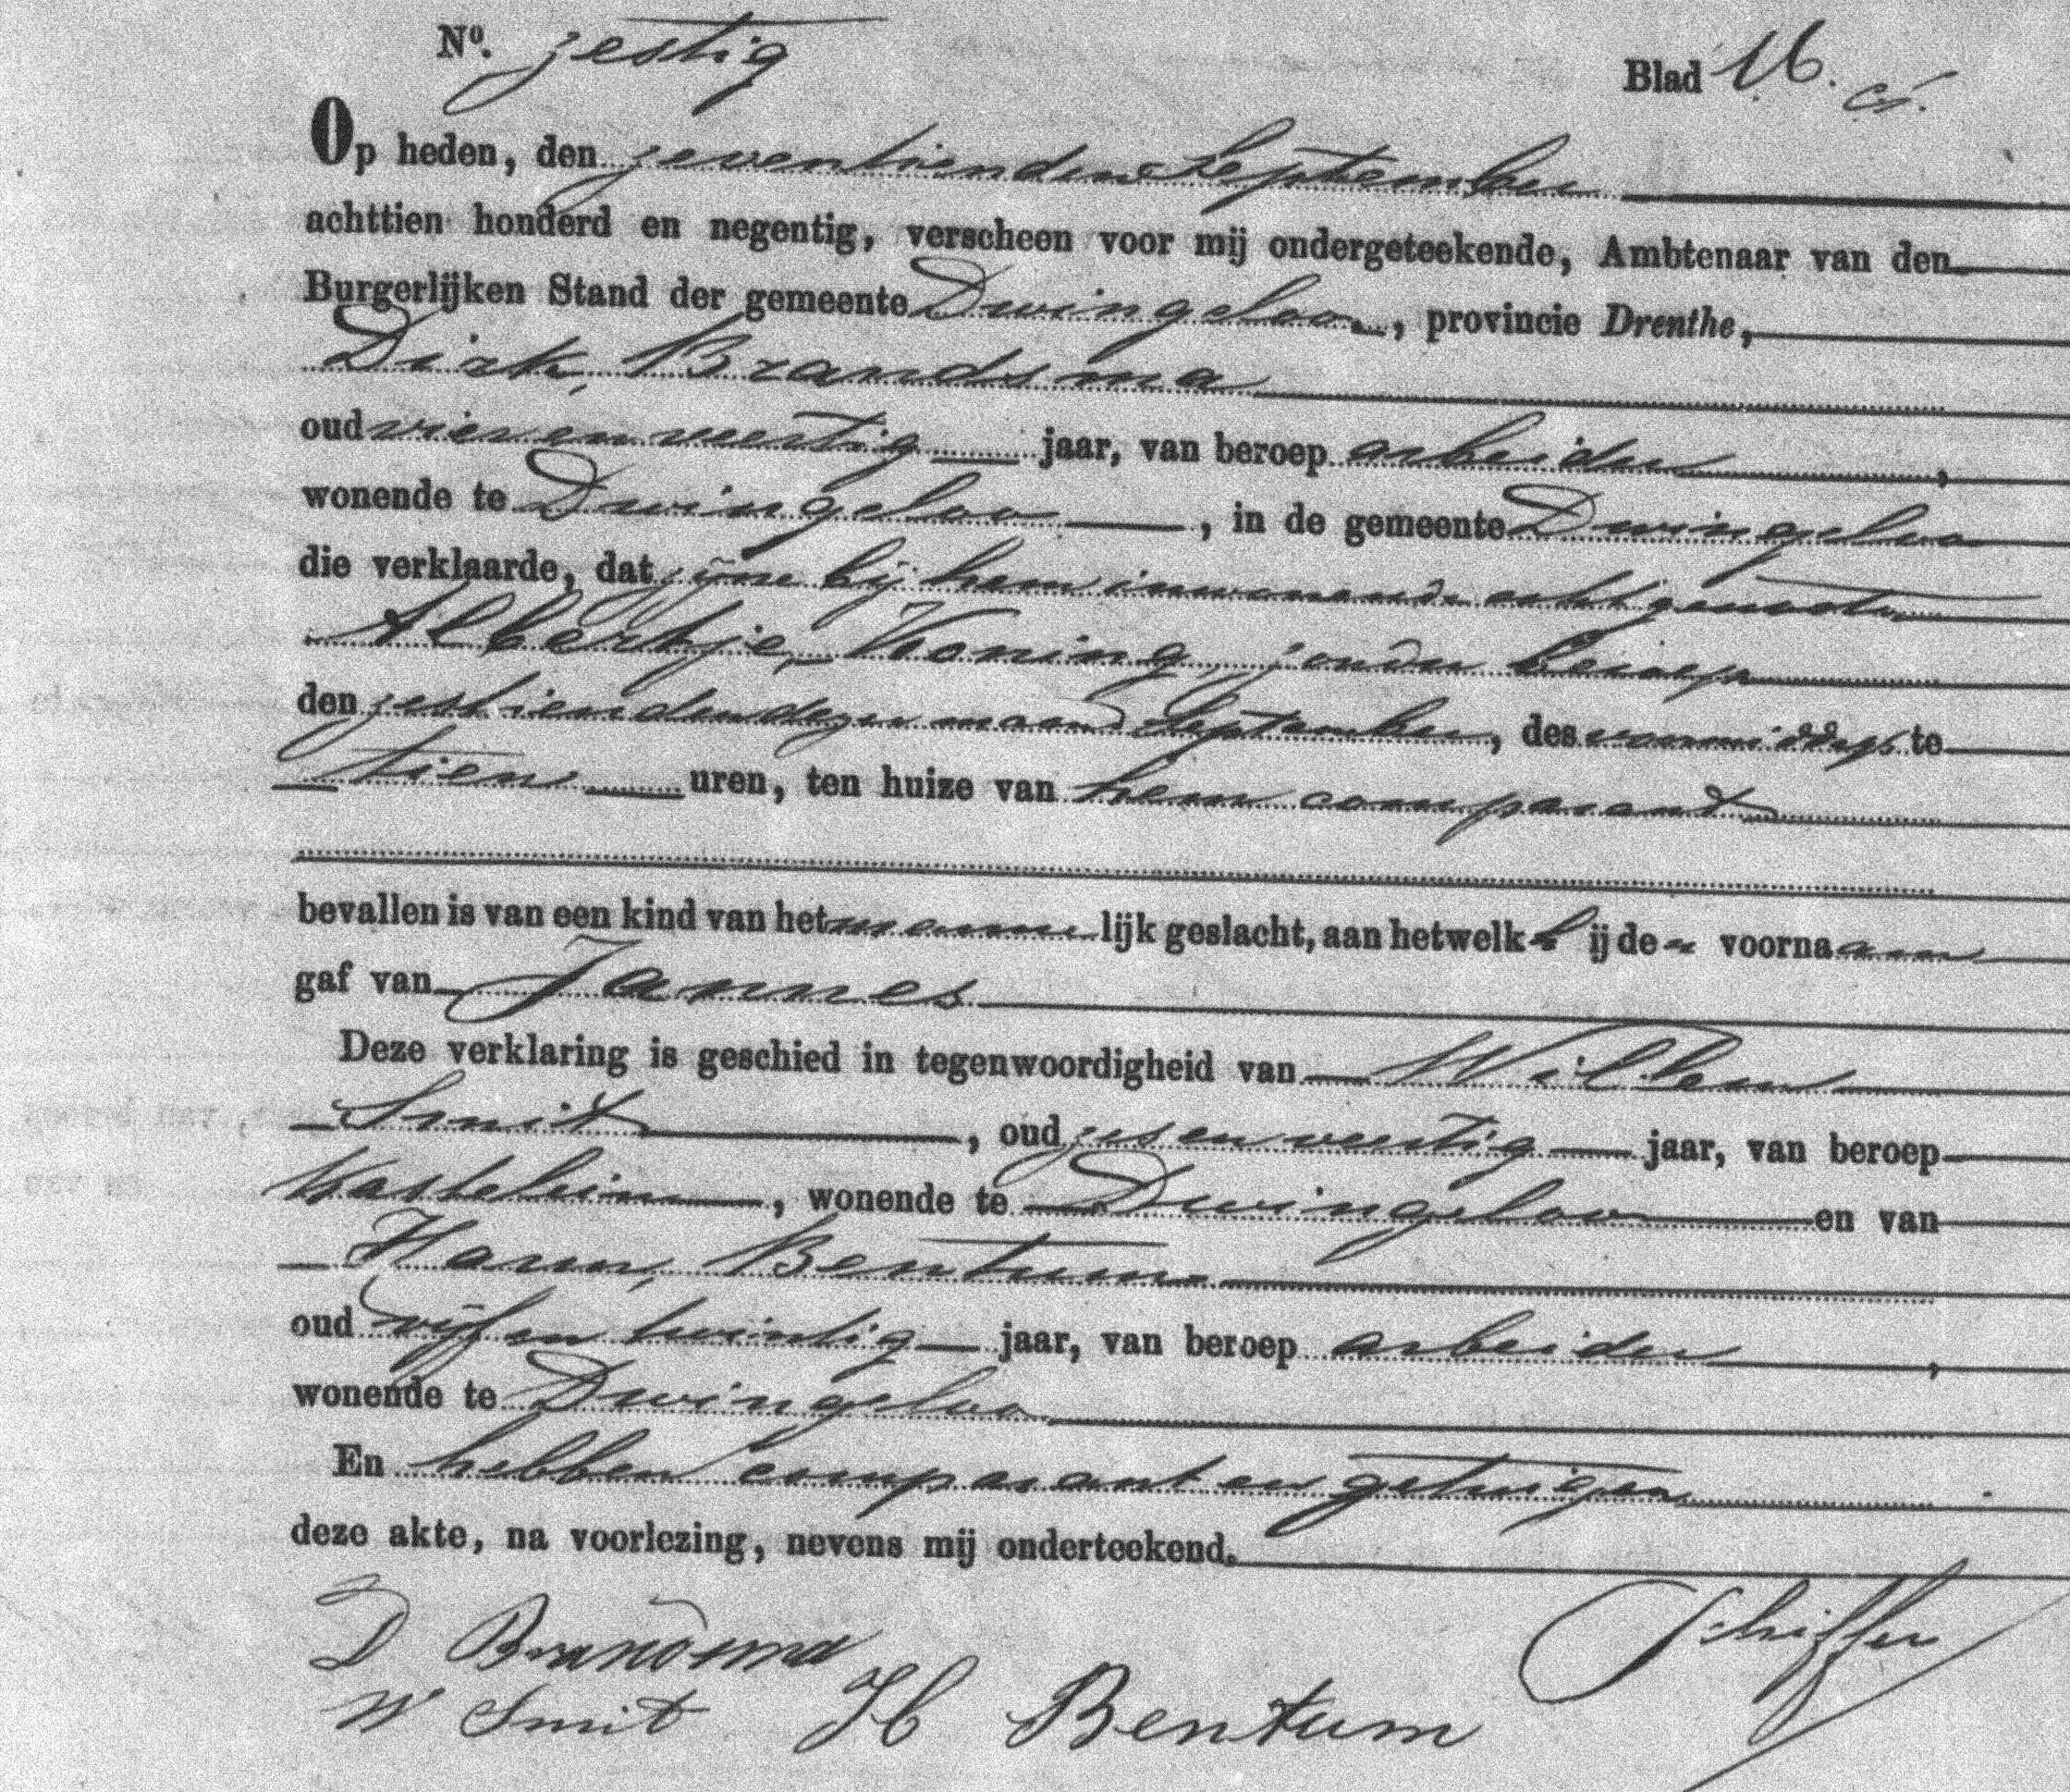 No. zestig
Blad 16.
Op heden, den zeventienden September
achttien honderd en negentig, verscheen voor mij ondergeteekende, Ambtenaar van den
Burgerlijken Stand der gemeente Dwingeloo, provincie Drenthe,
Dirk Brandsma
oud vier en veertig jaar, van beroep arbeider,
wonende te Dwingeloo, in de gemeente Dwingeloo
die verklaarde, dat zijne bij hem inwonende echtgenoote
Albertje Koning, zonder beroep
den zestienden dezer maand September, des voormiddags te
tien uren, ten huize van hem comparant
bevallen is van een kind van het mannelijk geslacht, aan hetwelk hij den voornaam
gaf van Jannes
Deze verklaring is geschied in tegenwoordigheid van Willem
Smit, oud zes en veertig jaar, van beroep
kastelein, wonende te Dwingeloo en van
Harm Bentum
oud vijf en twintig jaar, van beroep arbeider,
wonende te Dwingeloo
En hebben comparant en getuigen
deze akte, na voorlezing, nevens mij onderteekend.
D Brandsma
W Smit H Bentum